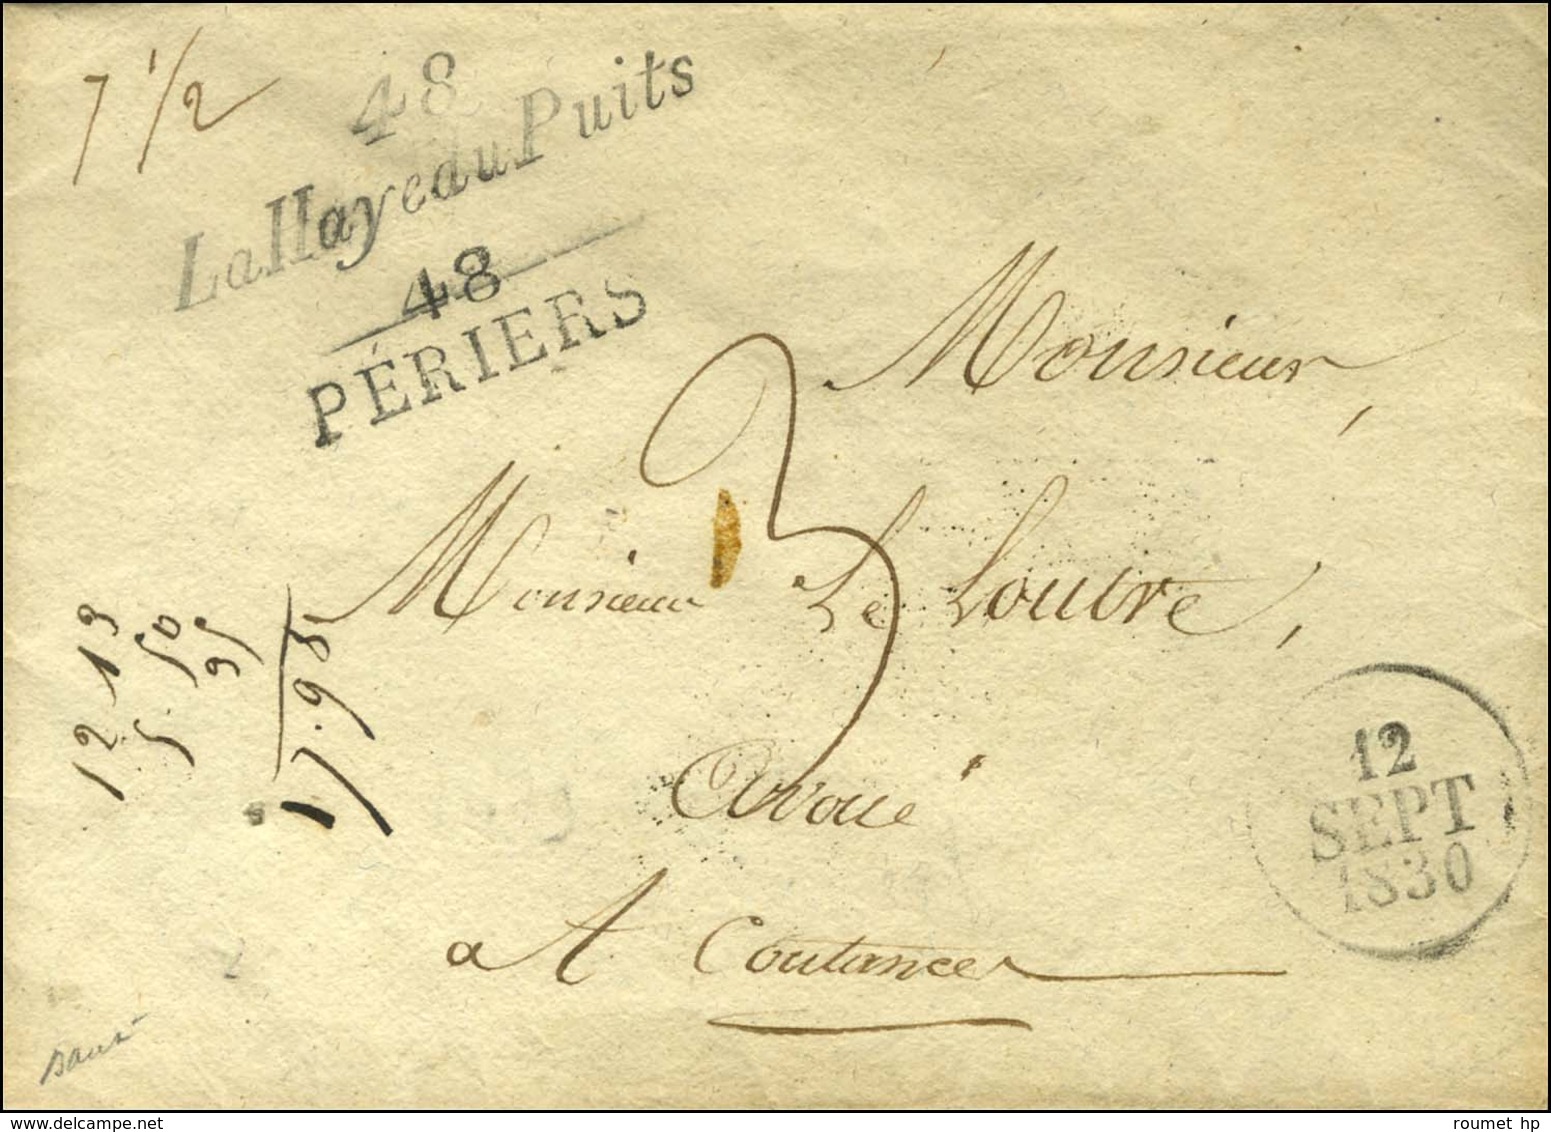 7 1/2
48
La Haye du Puits
48
PÉRIERS
Monsieur,
3
Monsieur Le Loutre,
Avoué
a A Coutances
12
SEPT
1830
12 13
5. 50
35
17. 98
www.delcampe.net
roumet hp